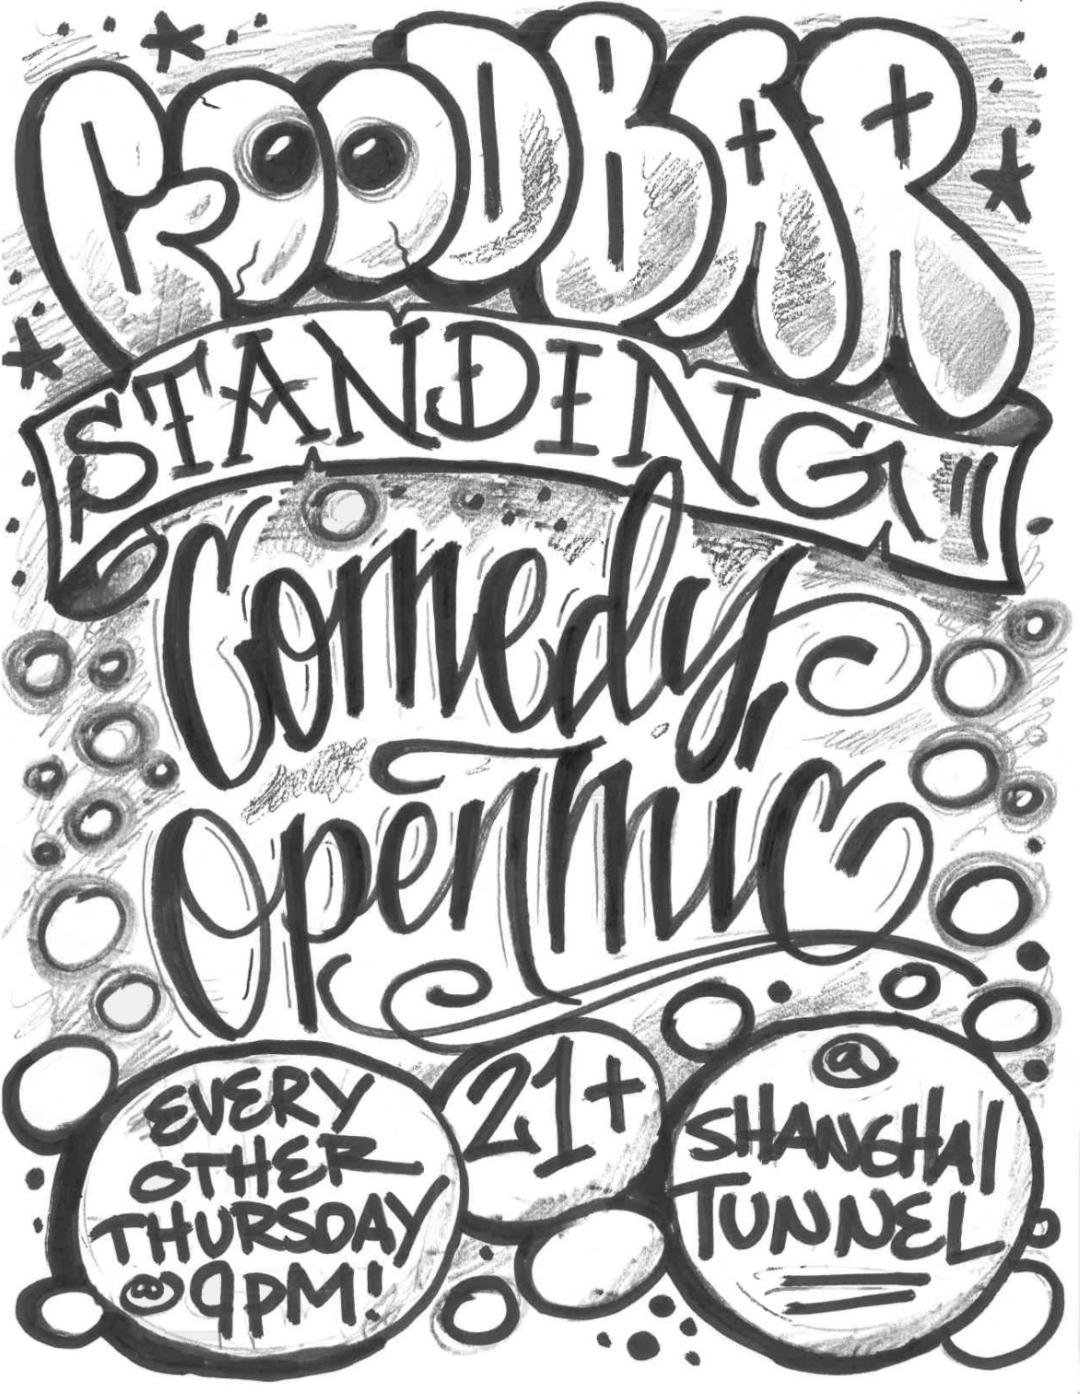 GOODBAR
STANDING
Comedy
Open Mic
EVERY
OTHER
THURSDAY
@ 9PM!
21+
@
SHANGHAI
TUNNEL